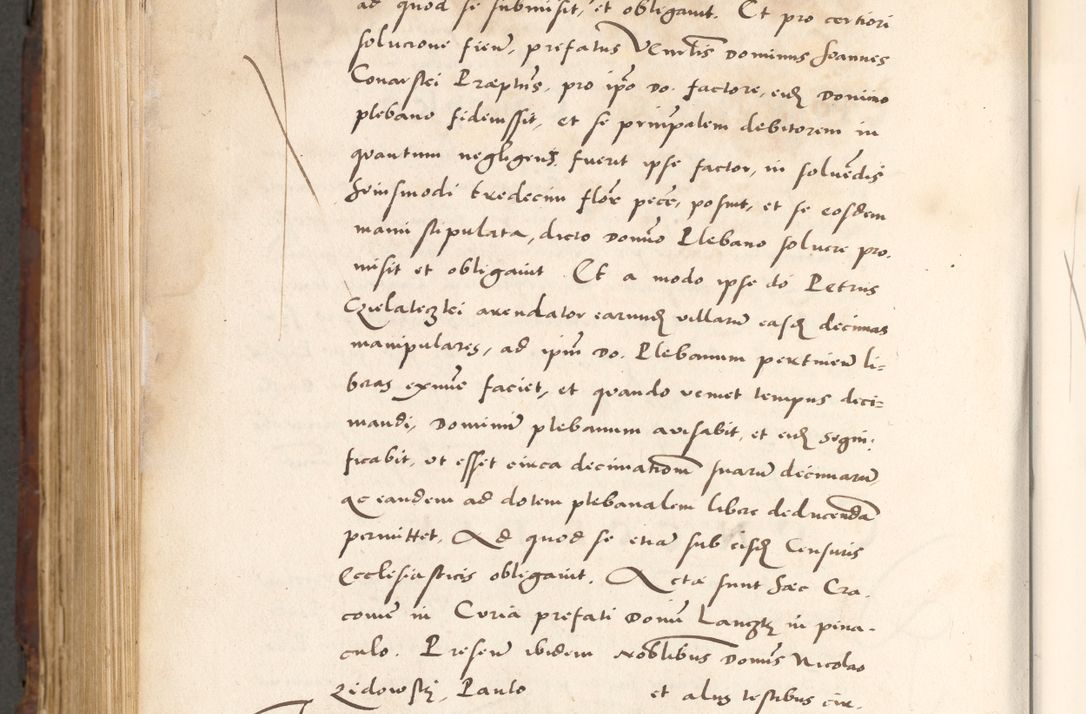 ad quod se submisit, et obligavit. Et pro certiori
solucione fien, prefatus Venrlis Dominus Joannes
Conarstei Præptus, pro ipo Do. factore, eidq Domino
plebano fideiussit, et se prinpalem debitorem in
quantum negligens fuerit ipse factor, in solvedis
hujusmodi tredecim flor pece, posuit, et se eosdem
manu stipulata, dicto Domno Plebano solvere pro.
misit et obligavit Et a modo ipse do Petrus
arendator earundq villarum easdq decimas
manipulares, ad ipm Do. Plebanum pertinen li-
beras exnue faciet, et quando veniet tempus deci-
mandi, Dominum plebanum avisabit, et eidq signi.
ficabit, ut esset circa decimationem suarum decimarum
ac eandem ad dotem plebanalem libere deducenda
permittet, Ad quod se etiam sub eisdq Censuris
Ecclesiasticis obligavit. Acta sunt hæc Cra.
covie in Curia prefati Domni in pina-
culo. Presen ibidem Noblibus Domnis Nicolao
Paulo et alys testibus cir.